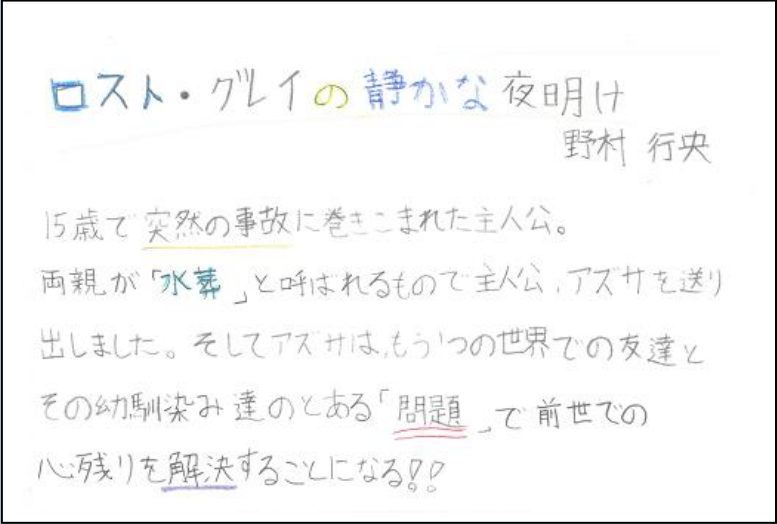 ロスト・グレイの静かな夜明け
野村 行央
15歳で突然の事故に巻きこまれた主人公。
両親が「水葬」と呼ばれるもので主人公、アズサを送り
出しました。そしてアズサは、もう1つの世界での友達と
その幼馴染み達のとある「問題」で前世での
心残りを解決することになる!!